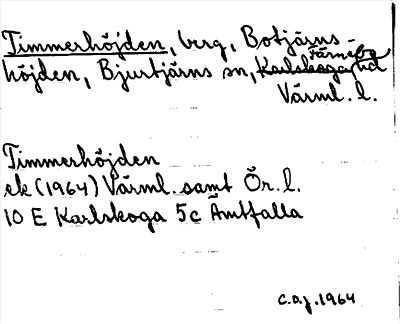 Timmerhöjden, berg, Botjärns-
höjden, Bjurtjärns sn, Karlskoga Färnebo hd
Värml. l.
Timmerhöjden
ek (1964) Värml. samt Ör. l.
10 E Karlskoga 5c Ämtfalla
C.O.J. 1964